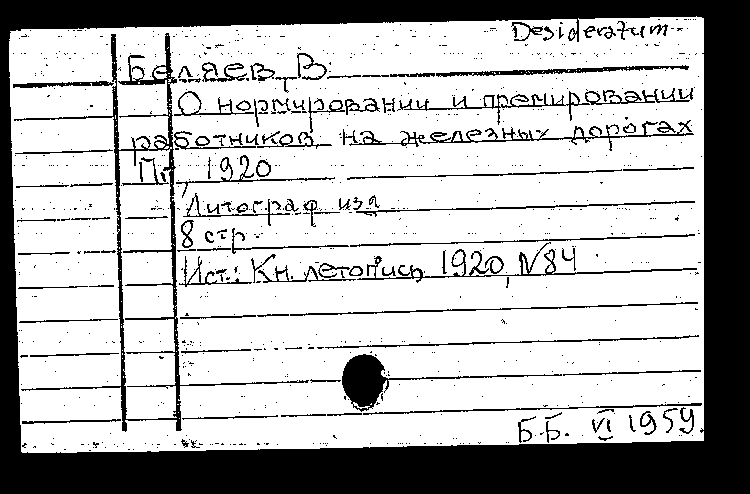 Desideratum
Беляев, В.
О нормировании и премировании
работников на железных дорогах
Пг, 1920
Литограф изд
8 стр.
Ист.: Кн. летопись 1920, №84
Б.Б. VI 1959.